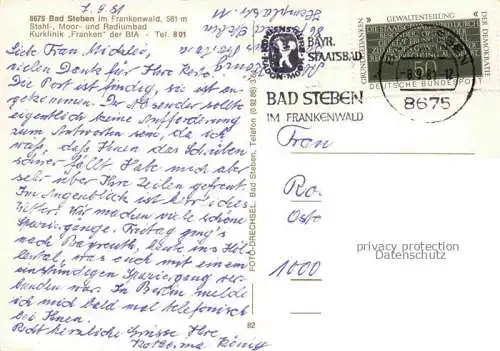 7.9.81
8675 Bad Steben im Frankenwald, 581 m
Stahl-, Moor- und Radiumbad
Kurklinik „Franken" der BfA - Tel. 801
Liebe Frau Michler,
vielen Dank für Ihre Karte.
Die Post ist findig, sie ist an-
gekommen. Der Absender sollte
eigentlich keine Aufforderung
zum Antworten sein, da ich
weiß, daß Ihnen das Schreiben
schwer fällt. Habe mich aber
sehr über Ihre Zeilen gefreut.
Im Augenblick ist hier
Wir machen viele schöne
Spaziergänge. Freitag ging's
nach Bayreuth, heute ins Höl-
lental, was auch mit einem
einstündigen Spaziergang ver-
bunden war. In Berlin melde
ich mich bald mal telefonisch
bei Ihnen.
Recht herzliche Grüsse Ihre
König
FOTO-DRECHSEL, Bad Steben, Telefon (0 92 88)
82
BAYR.
STAATSBAD
BAD STEBEN
IM FRANKENWALD
GEWALTENTEILUNG
GRUNDGEDANKEN
DER DEMOKRATIE
50
DEUTSCHE BUNDESPOST
BAD STEBEN
-8.9.81
8675
Frau
Ro
1000
privacy protection
Datenschutz